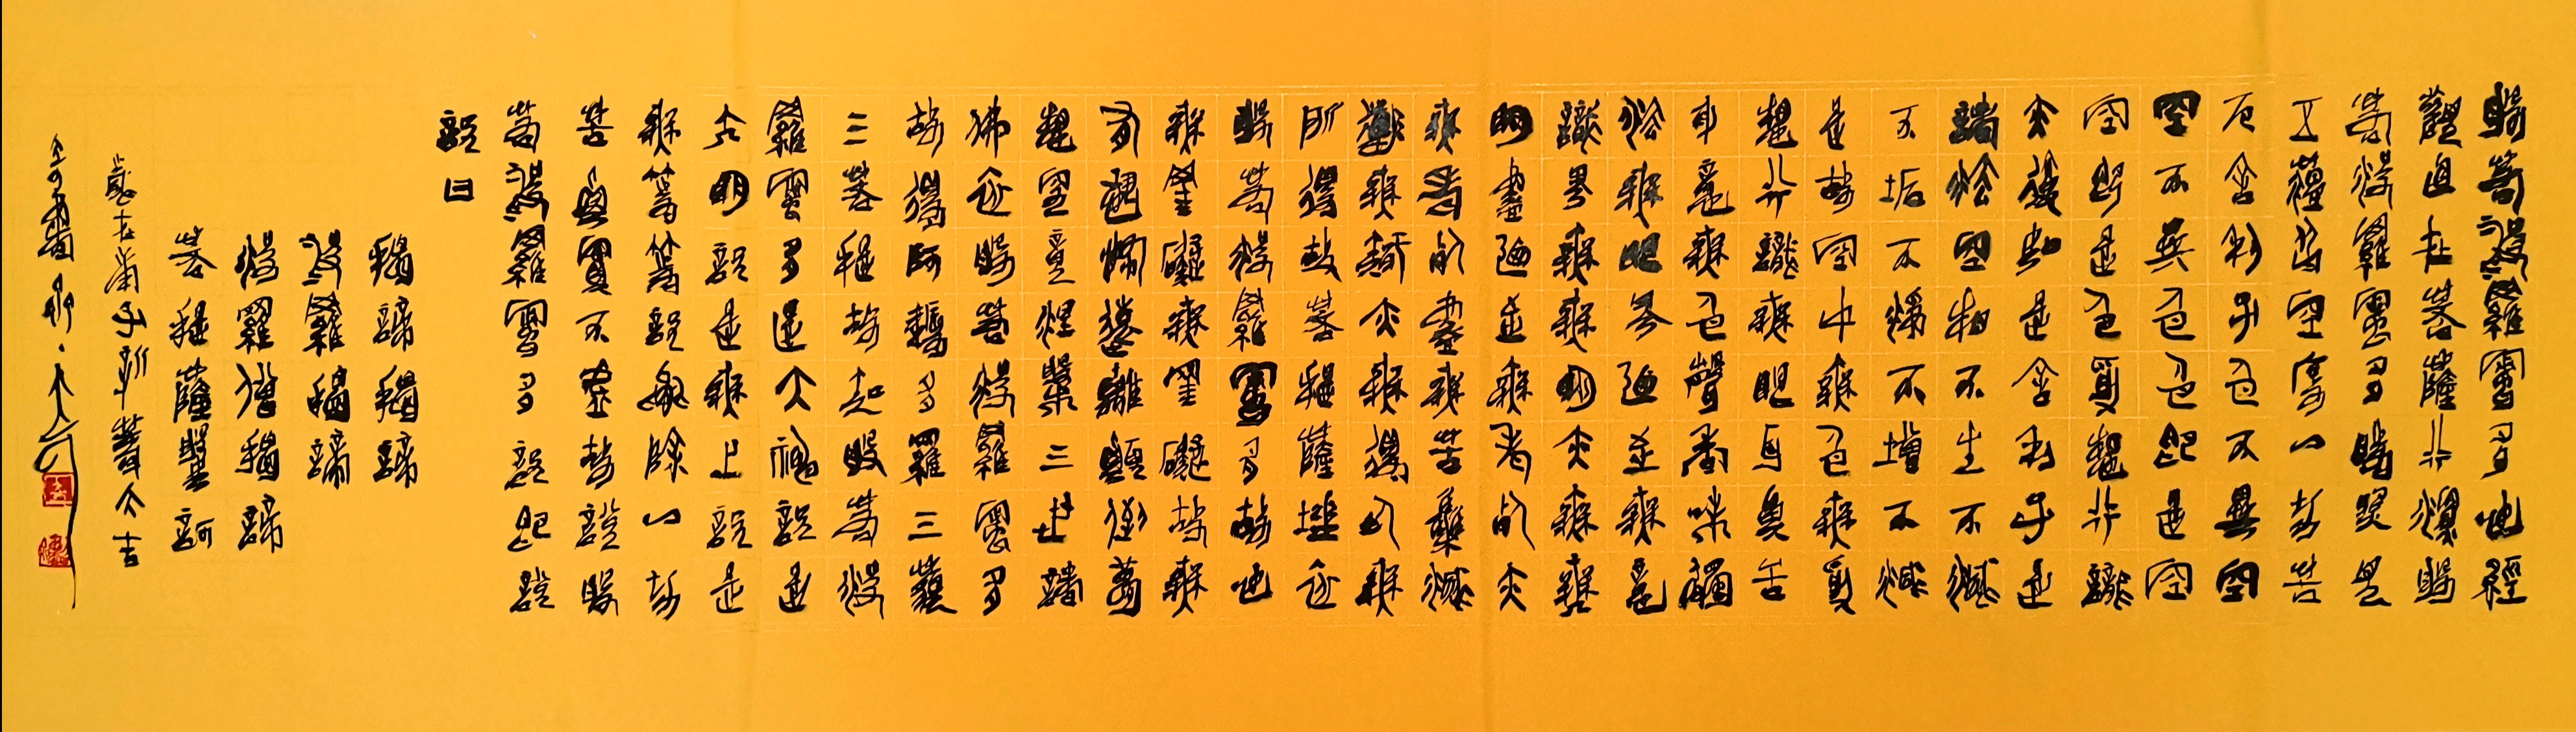 般若波羅蜜多心經
觀自在菩薩行深般
若波羅蜜多時照見
五蘊皆空度一切苦
厄舍利子色不異空
空不異色色即是空
空即是色受想行識
亦復如是舍利子是
諸法空相不生不滅
不垢不淨不增不減
是故空中無色無受
想行識無眼耳鼻舌
身意無色聲香味觸
法無眼界乃至無意
識界無無明亦無無
明盡乃至無老死亦
無老死盡無苦集滅
道無智亦無得以無
所得故菩提薩埵依
般若波羅蜜多故心
無罣礙無罣礙故無
有恐怖遠離顛倒夢
想究竟涅槃三世諸
佛依般若波羅蜜多
故得阿耨多羅三藐
三菩提故知般若波
羅蜜多是大神咒是
大明咒是無上咒是
無等等咒能除一切
苦真實不虛故說般
若波羅蜜多咒即說
咒曰
揭諦揭諦
波羅揭諦
波羅僧揭諦
菩提薩婆訶
歲在 子新 大吉